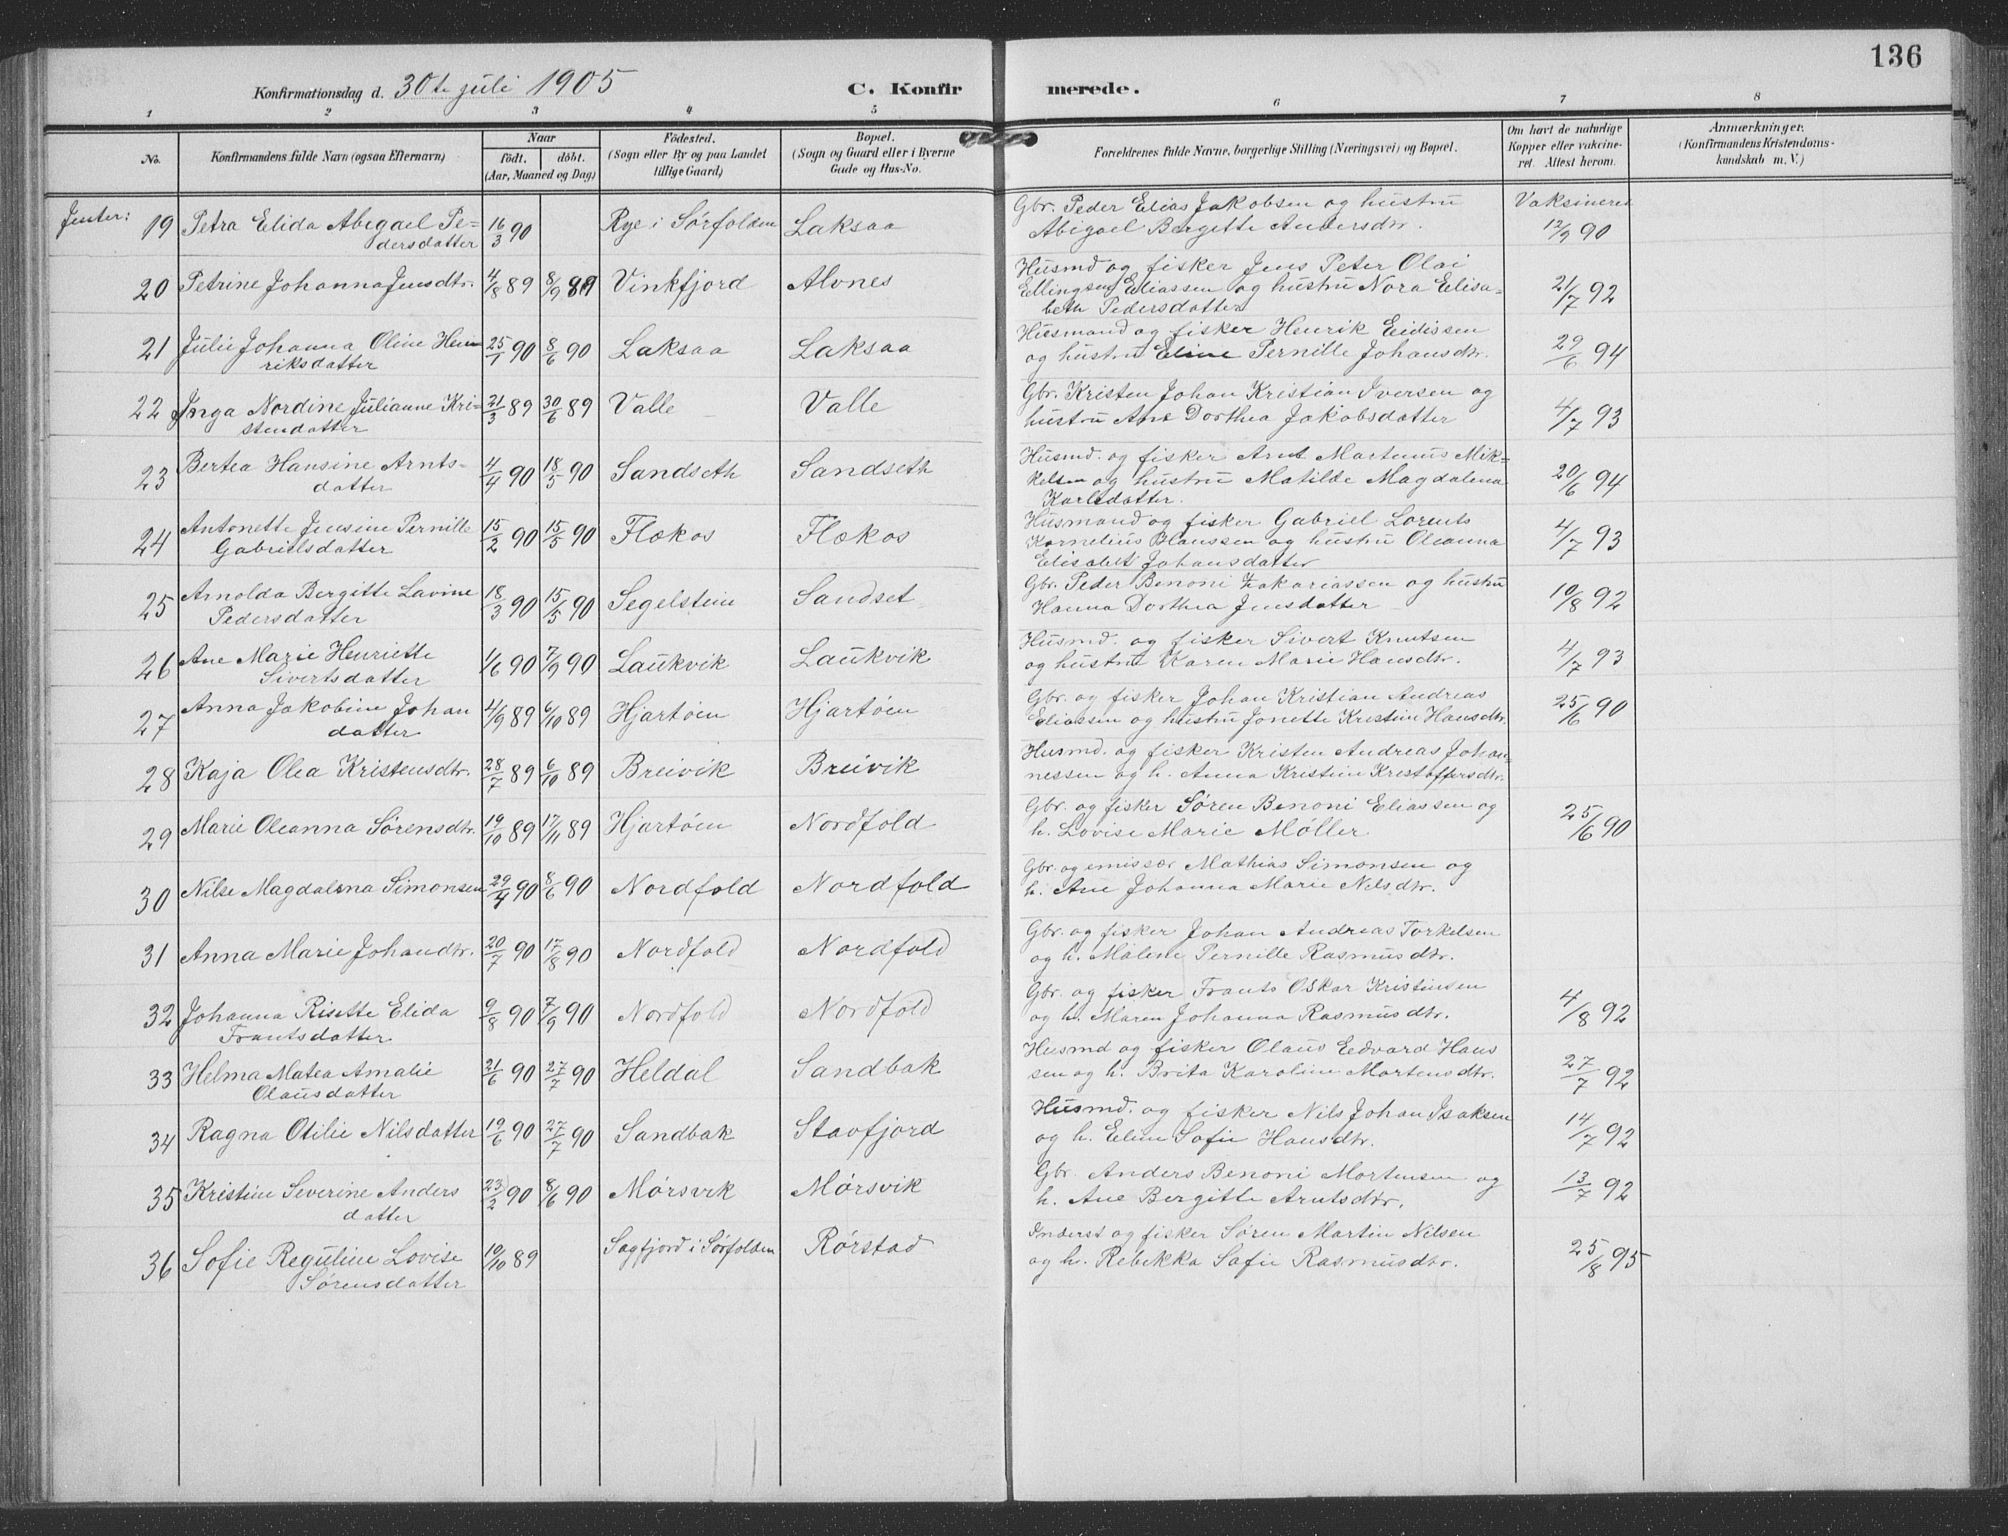 136
Konfirmationsdag d. 30te juli 1905 C. Konfir merede.
1 2 3 4 5 6 7 8
No. Konfirmandens fulde Navn (ogsaa Efternavn) Naar födt. döbt. (Aar, Maaned og Dag) Födested. (Sogn eller By og paa Landet tillige Gaard) Bopæl. (Sogn og Gaard eller i Byerne Gade og Hus-No. Forældrenes fulde Navne, borgerlige Stilling (Næringsvei) og Bopæl. Om havt de naturlige Kopper eller vakcineret. Attest herom. Anmærkninger. (Konfirmandens Kristendomskundskab m. V.)
Jenter: 19 Petra Elida Abigael Pe- 16/3 90 Rye i Sörfolden Laksaa Gbr. Peder Elias Jakobsen og hustru Vaksineret
dersdatter Abigael Bergitte Andersdtr. 12/9 90
20 Petrine Johanna Jensdtr. 4/8 89 8/9 89 Vinkfjord Alvnes Husmd og fisker Jens Peter Olai
Ellingsen Eliassen og hustru Nora Elisa- 21/7 92
beth Pedersdatter
21 Julie Johanna Oline Hen 25/1 90 8/6 90 Laksaa Laksaa Husmand og fisker Henrik Eidissen
riksdatter og hustru Eline Pernille Johansdtr. 29/6 94
22 Inga Nordine Julianne Kri- 21/3 89 30/6 89 Valle Valle Gbr. Kristen Johan Kristian Iversen og
stendatter hustru Ane Dorthea Jakobsdatter 4/7 93
23 Bertea Hansine Arnts- 4/4 90 18/5 90 Sandseth Sandseth Husmd. og fisker Arnt Martinus Mik-
datter kelsen og hustru Matilde Magdalena 20/6 94
Karlsdatter.
24 Antonette Jensine Pernille 15/2 90 15/5 90 Flækos Flækos Husmand og fisker Gabriel Lorents
Gabrielsdatter Kornelius Hanssen og hustru Oleanna 4/7 93
Elisabet Johansdatter
25 Arnolda Bergitte Lavine 18/3 90 15/5 90 Segelstein Sandset Gbr. Peder Benoni Zakariassen og hustru
Pedersdatter Hanna Dorthea Jensdatter 10/8 92
26 Ane Marie Henriette 1/6 90 7/9 90 Laukvik Laukvik Husmd. og fisker Sivert Knutsen
Sivertsdatter og hustru Karen Marie Hansdtr. 4/7 93
27 Anna Jakobine Johan 4/9 89 6/10 89 Hjartöen Hjartöen Gbr. og fisker Johan Kristian Andreas
datter Eliassen og hustru Jonette Kristine Hansdtr. 25/6 90
28 Kaja Olea Kristensdtr. 28/7 89 6/10 89 Breivik Breivik Husmd. og fisker Kristen Andreas Johan-
nessen og h. Anna Kristine Kristoffersdtr.
29 Marie Oleanna Sörensdtr. 19/10 89 17/11 89 Hjartöen Nordfold Gbr. og fisker Sören Benoni Eliassen og
h. Lovise Marie Möller 25/6 90
30 Nilse Magdalena Simonsen 29/4 90 8/6 90 Nordfold Nordfold Gbr. og emissær Mathias Simonsen og
h. Ane Johanna Marie Nilsdtr.
31 Anna Marie Johandtr. 20/7 90 17/8 90 Nordfold Nordfold Gbr. og fisker Johan Andreas Torkelsen
og h. Malene Pernille Rasmusdtr.
32 Johanna Risette Elida 9/8 90 7/9 90 Nordfold Nordfold Gbr. og fisker Frants Oskar Kristinsen
Frantsdatter og h. Maren Johanna Rasmusdtr. 4/8 92
33 Helma Matea Amalie 21/6 90 27/7 90 Heldal Sandbak Husmd og fisker Olaus Eedvard Hans
Olausdatter sen og h. Brita Karoline Mortensdtr. 27/7 92
34 Ragna Otilie Nilsdatter 19/6 90 27/7 90 Sandbak Stavfjord Husmd. og fisker Nils Johan Isaksen
og h. Eline Sofie Hansdtr. 14/7 92
35 Kristine Severine Anders 23/2 90 8/6 90 Mörsvik Mörsvik Gbr. Anders Benoni Mortensen og
datter h. Ane Bergitte Arntsdtr. 13/7 92
36 Sofie Reguline Lovise 10/10 89 Sagfjord i Sörfolden Rörstad Inderst og fisker Sören Martin Nilsen
Sörensdatter og h. Rebekka Sofie Rasmusdtr. 25/8 95